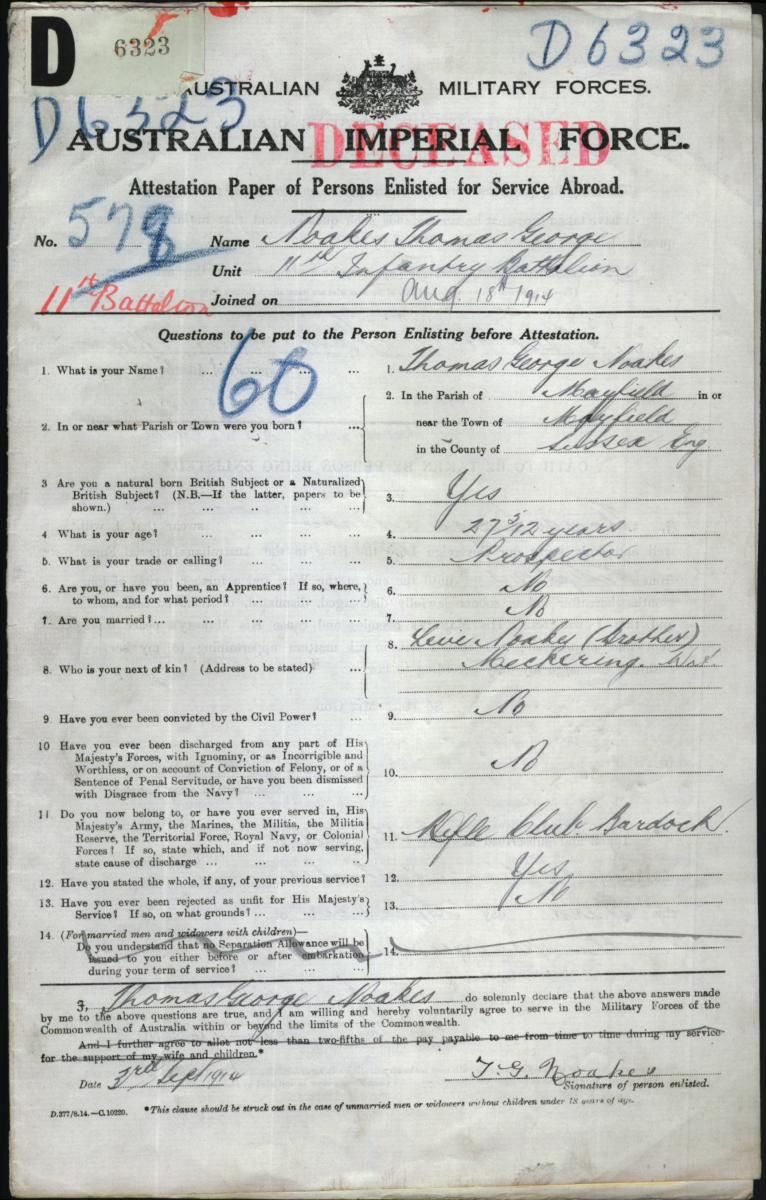 D 6323
D 6323
AUSTRALIAN MILITARY FORCES.
D 6323
AUSTRALIAN IMPERIAL FORCE.
DECEASED
Attestation Paper of Persons Enlisted for Service Abroad.
No. 578 Name Noakes Thomas George
Unit 11th Infantry Battalion
11th Battalion Joined on Aug. 18th 1914
Questions to be put to the Person Enlisting before Attestation.
60
1. What is your Name? ... ... ... ... 1. Thomas George Noakes
2. In or near what Parish or Town were you born? ... 2. In the Parish of Mayfield in or
near the Town of Mayfield
in the County of Sussex Eng
3 Are you a natural born British Subject or a Naturalized
British Subject? (N.B.—If the latter, papers to be
shown.) ... ... ... ... 3. Yes
4 What is your age? ... ... ... ... 4. 27 5/12 years
5. What is your trade or calling? ... ... ... 5. Prospector
6. Are you, or have you been, an Apprentice? If so, where,
to whom, and for what period? ... ... ... 6. No
7. Are you married?... ... ... ... 7. No
8. Who is your next of kin? (Address to be stated) ... 8. Levi Noakes (Brother)
Meckering. W.A.
9. Have you ever been convicted by the Civil Power? ... 9. No
10 Have you ever been discharged from any part of His
Majesty's Forces, with Ignominy, or as Incorrigible and
Worthless, or on account of Conviction of Felony, or of a
Sentence of Penal Servitude, or have you been dismissed
with Disgrace from the Navy? ... ... ... 10. No
11 Do you now belong to, or have you ever served in, His
Majesty's Army, the Marines, the Militia, the Militia
Reserve, the Territorial Force, Royal Navy, or Colonial
Forces? If so, state which, and if not now serving,
state cause of discharge ... ... ... ... 11. Rifle Club. Bardock.
12. Have you stated the whole, if any, of your previous service? 12. Yes
13. Have you ever been rejected as unfit for His Majesty's
Service? If so, on what grounds? ... ... ... 13. No
14. (For married men and widowers with children)—
Do you understand that no Separation Allowance will be
issued to you either before or after embarkation
during your term of service? ... ... ... 14.
I, Thomas George Noakes do solemnly declare that the above answers made
by me to the above questions are true, and I am willing and hereby voluntarily agree to serve in the Military Forces of the
Commonwealth of Australia within or beyond the limits of the Commonwealth.
And I further agree to allot not less than two-fifths of the pay payable to me from time to time during my service
for the support of my wife and children.*
Date 3rd Sept 1914 T. G. Noakes
Signature of person enlisted.
D.377/8.14.—C.10220. *This clause should be struck out in the case of unmarried men or widowers without children under 18 years of age.